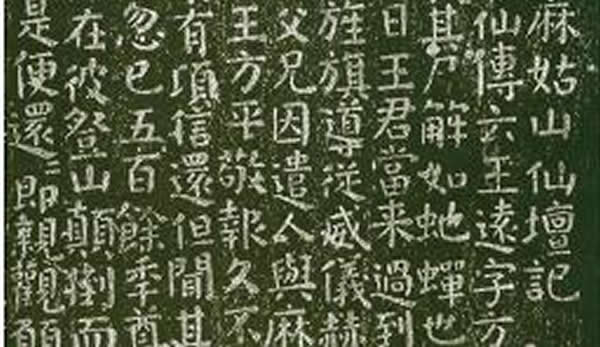 麻姑山仙壇記
仙傳云王遠字方
其尸解如虵蟬也
日王君當来過到
旌旗導從威儀赫
父兄因遣人與麻
王方平敬報久不
有頃信還但聞其
忽已五百餘秊尊
在彼登山顛倒而
是便還〻即親觀願